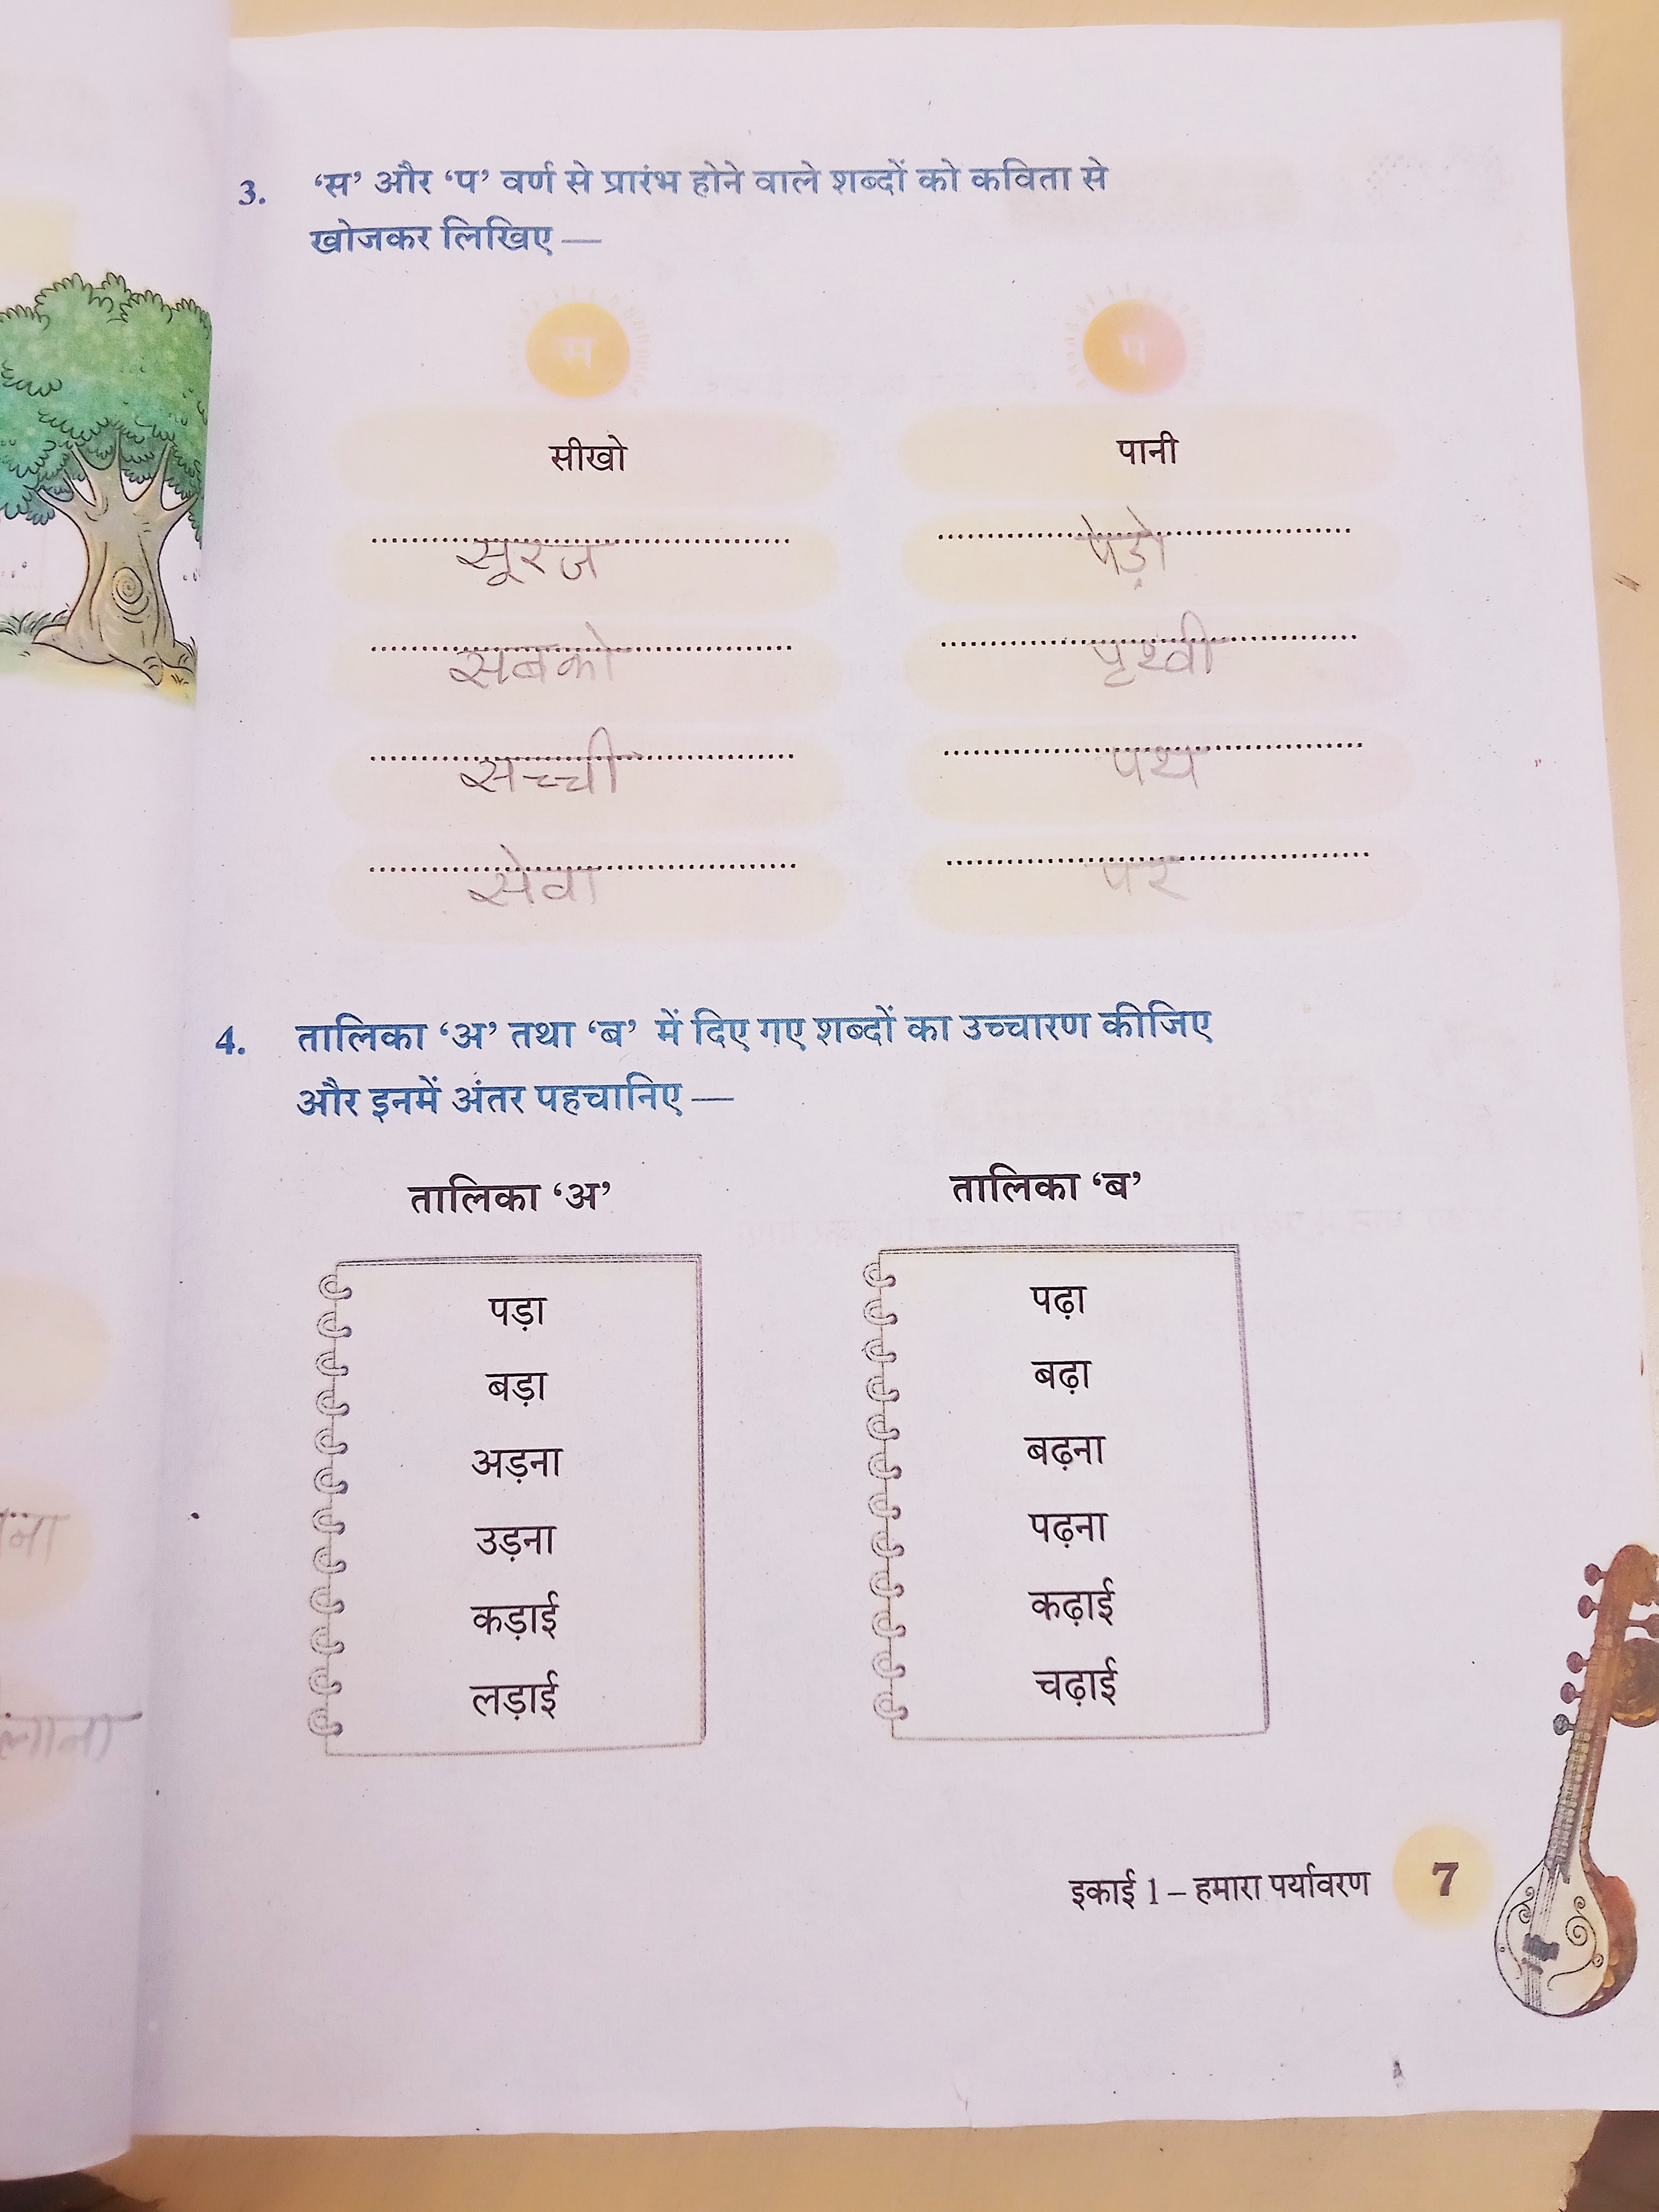 3. ‘स’ और ‘प’ वर्ण से प्रारंभ होने वाले शब्दों को कविता से
खोजकर लिखिए —
स प
सीखो पानी
सूरज पेड़ो
सबको पृथ्वी
सच्ची पथ
सेवा पर
4. तालिका ‘अ’ तथा ‘ब’ में दिए गए शब्दों का उच्चारण कीजिए
और इनमें अंतर पहचानिए —
तालिका ‘अ’ तालिका ‘ब’
पड़ा पढ़ा
बड़ा बढ़ा
अड़ना बढ़ना
उड़ना पढ़ना
कड़ाई कढ़ाई
लड़ाई चढ़ाई
इकाई 1 – हमारा पर्यावरण 7